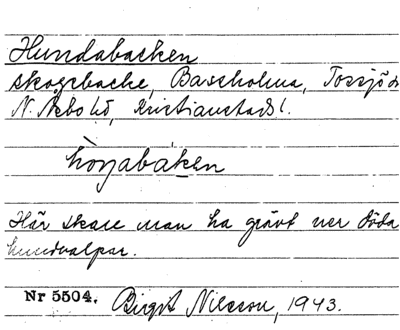 Hundabacken
skogsbacke, Bassholma, Tossjö s
N. Åsbo hd, Kristianstads l.
Här skall man ha grävt ner döda
hundvalpar.
Nr 5504. Birgit Nilsson, 1943.